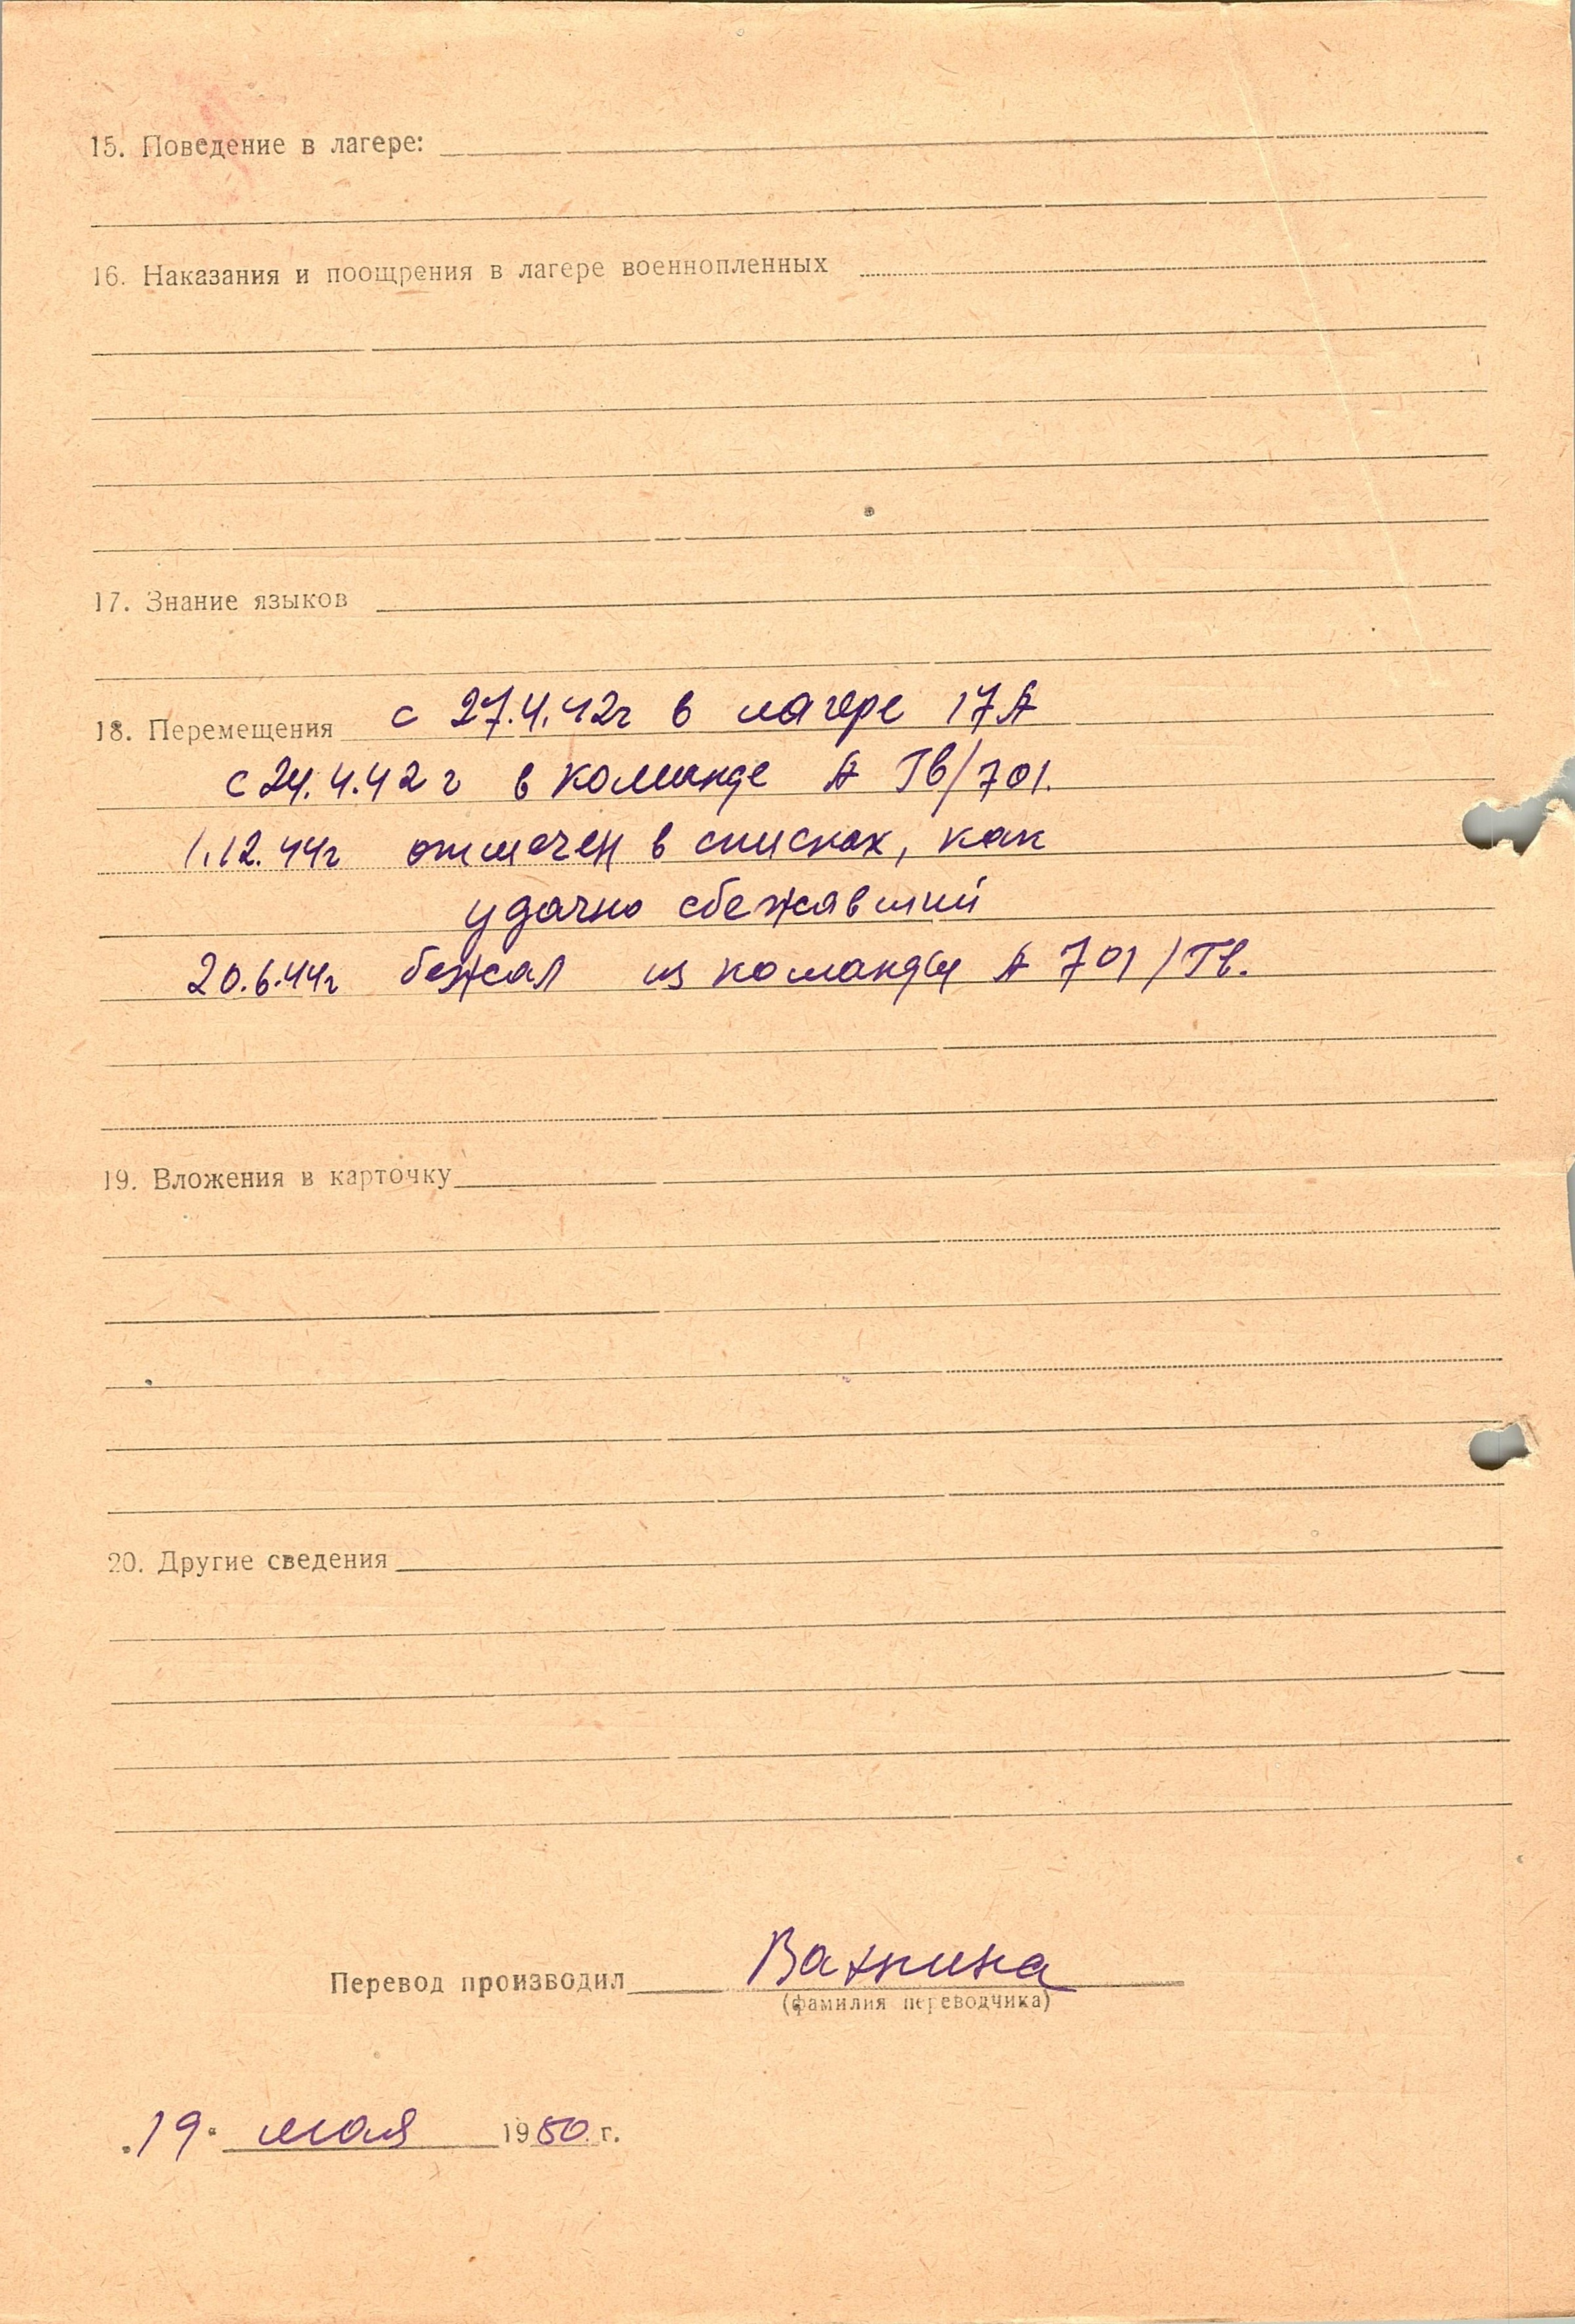 15. Поведение в лагере:
16. Наказания и поощрения в лагере военнопленных
17. Знание языков
18. Перемещения с 27.4.42г в лагере 17А
с 24.4.42 г в команде А Гв/701.
1.12.44г отмечен в списках, как
удачно сбежавший
20.6.44г бежал из команды А 701/Гв.
19. Вложения в карточку
20. Другие сведения
Перевод производил
(фамилия переводчика)
19 мая 1950 г.